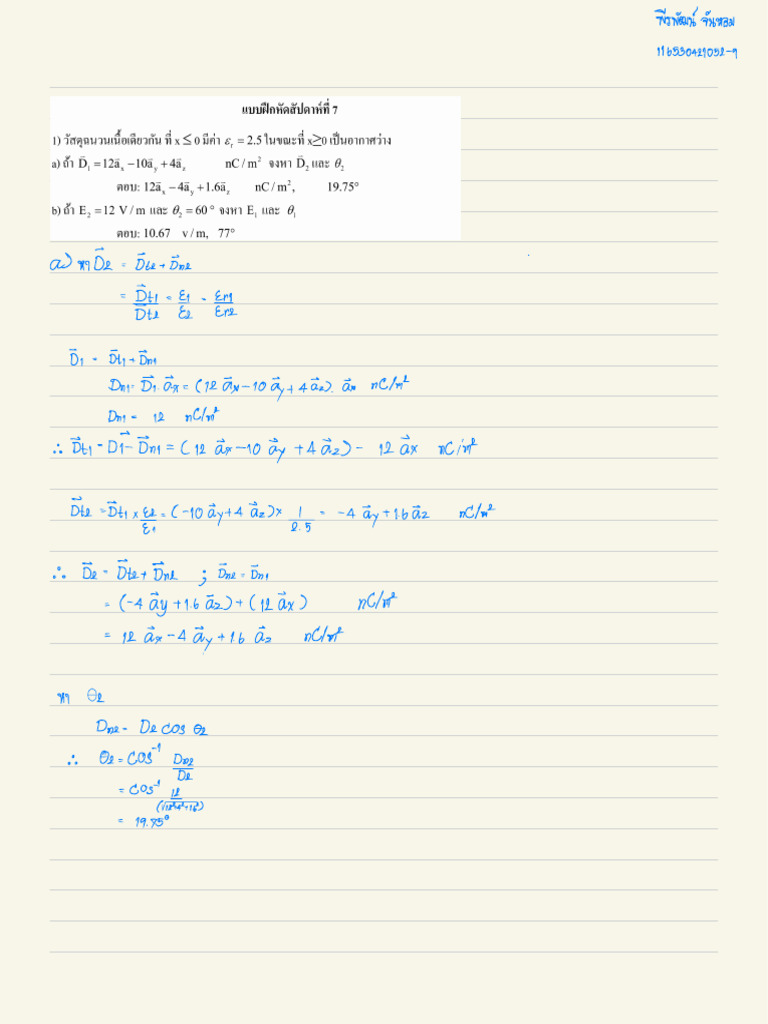 พีรพัฒน์ จันหอม
116530421052-9
แบบฝึกหัดสัปดาห์ที่ 7
1) วัสดุฉนวนเนื้อเดียวกัน ที่ x ≤ 0 มีค่า εᵣ = 2.5 ในขณะที่ x≥0 เป็นอากาศว่าง
a) ถ้า D⃗₁ = 12a⃗ₓ −10a⃗ᵧ + 4a⃗_z nC / m² จงหา D⃗₂ และ θ₂
ตอบ: 12a⃗ₓ − 4a⃗ᵧ +1.6a⃗_z nC / m², 19.75°
b) ถ้า E₂ = 12 V / m และ θ₂ = 60 ° จงหา E₁ และ θ₁
ตอบ: 10.67 v / m, 77°
a) หา D⃗2 = D⃗t2 + D⃗n2
= D⃗t1/D⃗t2 = ε1/ε2 = εr1/εr2
D⃗1 = D⃗t1 + D⃗n1
Dn1 = D⃗1 a⃗x = (12 a⃗x − 10 a⃗y + 4 a⃗z). a⃗x nC/m²
Dn1 = 12 nC/m²
∴ D⃗t1 = D⃗1 − D⃗n1 = (12 a⃗x − 10 a⃗y + 4 a⃗z) − 12 a⃗x nC/m²
D⃗t2 = D⃗t1 × ε2/ε1 = (−10 a⃗y + 4 a⃗z) × 1/2.5 = −4 a⃗y + 1.6 a⃗z nC/m²
∴ D⃗2 = D⃗t2 + D⃗n2 ; D⃗n2 = D⃗n1
= (−4 a⃗y + 1.6 a⃗z) + (12 a⃗x) nC/m²
= 12 a⃗x − 4 a⃗y + 1.6 a⃗z nC/m²
หา θ2
Dn2 = D2 cos θ2
∴ θ2 = cos⁻¹ Dn2/D2
= cos⁻¹ 12/
= 19.75°